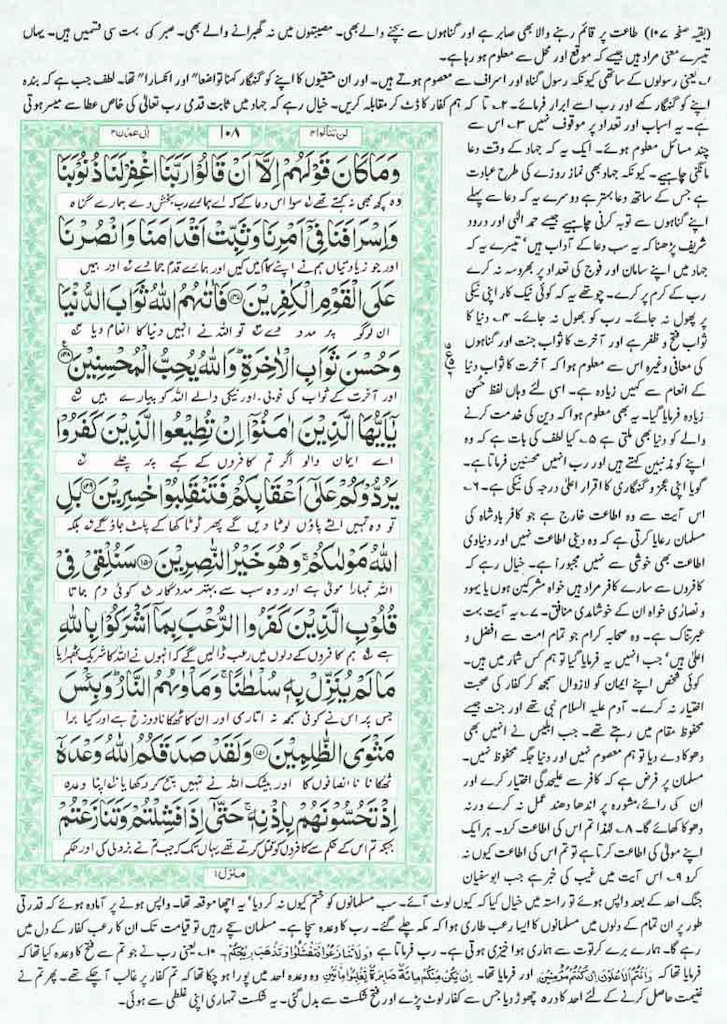 (بقیہ صفحہ ۱۰۷) طاعت پر قائم رہنے والا بھی صابر ہے اور گناہوں سے بچنے والے بھی۔ مصیبتوں میں نہ گھبرانے والے بھی۔ صبر کی بہت سی قسمیں ہیں۔ یہاں
تیسرے معنی مراد ہیں جیسے کہ موقع اور محل سے معلوم ہو رہا ہے۔
۱۔ یعنی رسولوں کے ساتھی کیونکہ رسول گناہ اور اسراف سے معصوم ہوتے ہیں۔ اور ان متقیوں کا اپنے کو گنہگار کہنا تواضعا" اور انکسارا" تھا۔ لطف جب ہے کہ بندہ
اپنے کو گنہگار کہے اور رب اسے ابرار فرمائے۔ ۲۔ تا کہ ہم کفار کا ڈٹ کر مقابلہ کریں۔ خیال رہے کہ جہاد میں ثابت قدمی رب تعالٰی کی خاص عطا سے میسر ہوتی
ہے۔ یہ اسباب اور تعداد پر موقوف نہیں ۳۔ اس سے
چند مسائل معلوم ہوئے۔ ایک یہ کہ جہاد کے وقت دعا
مانگنی چاہیے۔ کیونکہ جہاد بھی نماز روزے کی طرح عبادت
ہے جس کے ساتھ دعا بہتر ہے دوسرے یہ کہ دعا سے پہلے
اپنے گناہوں سے توبہ کرنی چاہیے جیسے حمد الٰہی اور درود
شریف پڑھنا کہ یہ سب دعا کے آداب ہیں' تیسرے یہ کہ
جہاد میں اپنے سامان اور فوج کی تعداد پر بھروسہ نہ کرے
رب کے کرم پر کرے۔ چوتھے یہ کہ کوئی نیک کار اپنی نیکی
پر پھول نہ جائے۔ رب کو بھول نہ جائے۔ ۴۔ دنیا کا
ثواب فتح و ظفر ہے اور آخرت کا ثواب جنت اور گناہوں
کی معافی وغیرہ اس سے معلوم ہوا کہ آخرت کا ثواب دنیا
کے انعام سے کہیں زیادہ ہے۔ اسی لئے وہاں لفظ حُسْن
زیادہ فرمایا گیا۔ یہ بھی معلوم ہوا کہ دین کی خدمت کرنے
والے کو دنیا بھی ملتی ہے ۵۔ کیا لطف کی بات ہے کہ وہ
اپنے کو مذنبین کہتے ہیں اور رب انہیں محسنین فرماتا ہے۔
گویا اپنی عجز و گنہگاری کا اقرار اعلیٰ درجہ کی نیکی ہے۔ ۶۔
اس آیت سے وہ اطاعت خارج ہے جو کافر بادشاہ کی
مسلمان رعایا کرتی ہے کہ وہ دینی اطاعت نہیں اور دنیاوی
اطاعت بھی خوشی سے نہیں مجبورا ہے۔ خیال رہے کہ
کافروں سے سارے کافر مراد ہیں خواہ مشرکین ہوں یا یہود
و نصاریٰ خواہ ان کے خوشامدی منافق۔ ۷۔ یہ آیت بہت
عبرتناک ہے۔ وہ صحابہ کرام جو تمام امت سے افضل و
اعلیٰ ہیں' جب انہیں یہ فرمایا گیا تو ہم کس شمار میں ہیں۔
کوئی شخص اپنے ایمان کو لازوال سمجھ کر کفار کی صحبت
اختیار نہ کرے۔ آدم علیہ السلام نبی تھے اور جنت جیسے
محفوظ مقام میں رہتے تھے۔ جب ابلیس نے انہیں بھی
دھوکا دے دیا تو ہم معصوم نہیں اور دنیا جگہ محفوظ نہیں۔
مسلمان پر فرض ہے کہ کافر سے علیحدگی اختیار کرے اور
ان کی رائے مشورہ پر اندھا دھند عمل نہ کرے ورنہ
دھوکا کھائے گا۔ ۸۔ لہٰذا تم اس کی اطاعت کرو۔ ہر ایک
اپنے مولیٰ کی اطاعت کرتا ہے تو تم اس کی اطاعت کیوں نہ
کرو ۹۔ اس آیت میں غیب کی خبر ہے جب ابوسفیان
لن تنالوا۴ ۱۰۸ اٰل عمرٰن۳
وَمَا كَانَ قَوْلَهُمْ اِلَّاۤ اَنْ قَالُوْا رَبَّنَا اغْفِرْ لَنَا ذُنُوْبَنَا
وہ کچھ بھی نہ کہتے تھے سوا اس دعا کے کہ اے ہمارے رب بخش دے ہمارے گناہ
وَاِسْرَافَنَا فِیْۤ اَمْرِنَا وَثَبِّتْ اَقْدَامَنَا وَانْصُرْنَا
اور جو زیادتیاں ہم نے اپنے کام میں کیں اور ہمارے قدم جمادے اور ہمیں
عَلَى الْقَوْمِ الْكٰفِرِیْنَ ۱۴۷ فَاٰتٰىهُمُ اللّٰهُ ثَوَابَ الدُّنْیَا
ان لوگوں پر مدد دے تو اللہ نے انہیں دنیا کا انعام دیا
وَحُسْنَ ثَوَابِ الْاٰخِرَةِ ؕ وَاللّٰهُ یُحِبُّ الْمُحْسِنِیْنَ ۱۴۸
اور آخرت کے ثواب کی خوبی۔ اور نیکی والے اللہ کو پیارے ہیں
یٰۤاَیُّهَا الَّذِیْنَ اٰمَنُوْۤا اِنْ تُطِیْعُوا الَّذِیْنَ كَفَرُوْا
اے ایمان والو اگر تم کافروں کے کہے پر چلے
یَرُدُّوْكُمْ عَلٰۤى اَعْقَابِكُمْ فَتَنْقَلِبُوْا خٰسِرِیْنَ ۱۴۹ بَلِ
تو وہ تمہیں الٹے پاؤں لوٹا دیں گے پھر ٹوٹا کھا کے پلٹ جاؤ گے بلکہ
اللّٰهُ مَوْلٰىكُمْ ۚ وَهُوَ خَیْرُ النّٰصِرِیْنَ ۱۵۰ سَنُلْقِیْ فِیْ
اللہ تمہارا مولیٰ ہے اور وہ سب سے بہتر مددگار کوئی دم جاتا
قُلُوْبِ الَّذِیْنَ كَفَرُوا الرُّعْبَ بِمَاۤ اَشْرَكُوْا بِاللّٰهِ
ہے کہ ہم کافروں کے دلوں میں رعب ڈالیں گے کہ انہوں نے اللہ کا شریک ٹھہرایا
مَا لَمْ یُنَزِّلْ بِهٖ سُلْطٰنًا ۚ وَمَاْوٰىهُمُ النَّارُ ؕ وَبِئْسَ
جس پر اس نے کوئی سمجھ نہ اتاری اور ان کا ٹھکانا دوزخ ہے اور کیا برا
مَثْوَى الظّٰلِمِیْنَ ۱۵۱ وَلَقَدْ صَدَقَكُمُ اللّٰهُ وَعْدَهٗۤ
ٹھکانا ناانصافوں کا اور بیشک اللہ نے تمہیں سچ کر دکھایا اپنا وعدہ
اِذْ تَحُسُّوْنَهُمْ بِاِذْنِهٖ ۚ حَتّٰۤى اِذَا فَشِلْتُمْ وَتَنَازَعْتُمْ
جبکہ تم اس کے حکم سے کافروں کو قتل کرتے تھے یہاں تک کہ جب تم نے بزدلی کی اور حکم
منزل۱
جنگ احد کے بعد واپس ہوئے تو راستہ میں خیال کیا کہ کیوں لوٹ آئے۔ سب مسلمانوں کو ختم کیوں نہ کر دیا' یہ اچھا موقعہ تھا۔ واپس ہونے پر آمادہ ہوئے کہ قدرتی
طور پر ان تمام کے دلوں میں مسلمانوں کا ایسا رعب طاری ہوا کہ مکہ چلے گئے۔ رب کا وعدہ سچا ہے۔ مسلمان سچے رہیں تو قیامت تک ان کا رعب کفار کے دل میں
رہے گا۔ ہمارے برے کرتوت سے ہماری ہوا خیزی ہوتی ہے۔ رب فرماتا ہے وَلَا تَنَازَعُوْا فَتَفْشَلُوْا وَتَذْهَبَ رِیْحُكُمْ۔ ۱۰۔ یعنی رب نے جو تم سے فتح کا وعدہ کیا تھا کہ
فرمایا تھا کہ وَاَنْتُمُ الْاَعْلَوْنَ اِنْ كُنْتُمْ مُّؤْمِنِیْنَ اور فرمایا تھا۔ اِنْ یَّكُنْ مِّنْكُمْ مِّائَةٌ صَابِرَةٌ یَّغْلِبُوْا مِائَتَیْنِ وہ وعدہ احد میں پورا ہو چکا تھا کہ تم کفار پر غالب آ چکے تھے۔ پھر تم نے
غنیمت حاصل کرنے کے لئے احد کا درہ چھوڑ دیا جس سے کفار لوٹ پڑے اور فتح شکست سے بدل گئی۔ یہ شکست تمہاری اپنی غلطی سے ہوئی۔